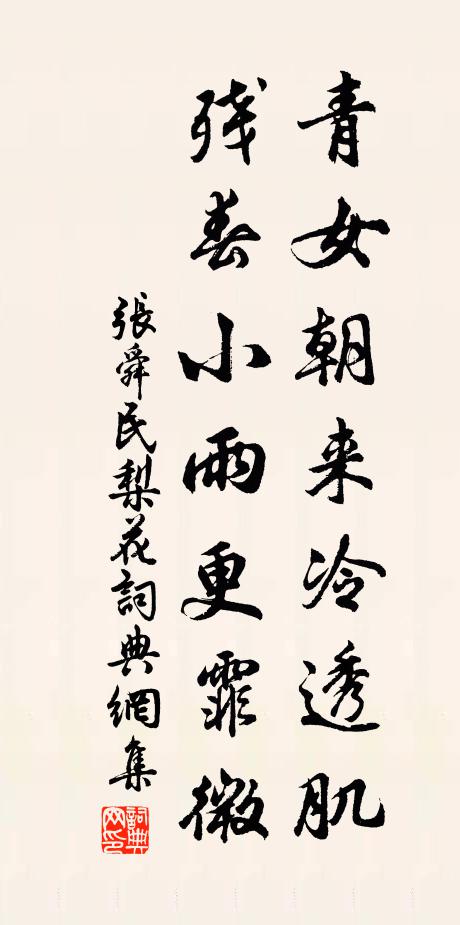 青女朝来冷透肌
残春小雨更霏微
張舜民梨花詞典網集
詞典网印